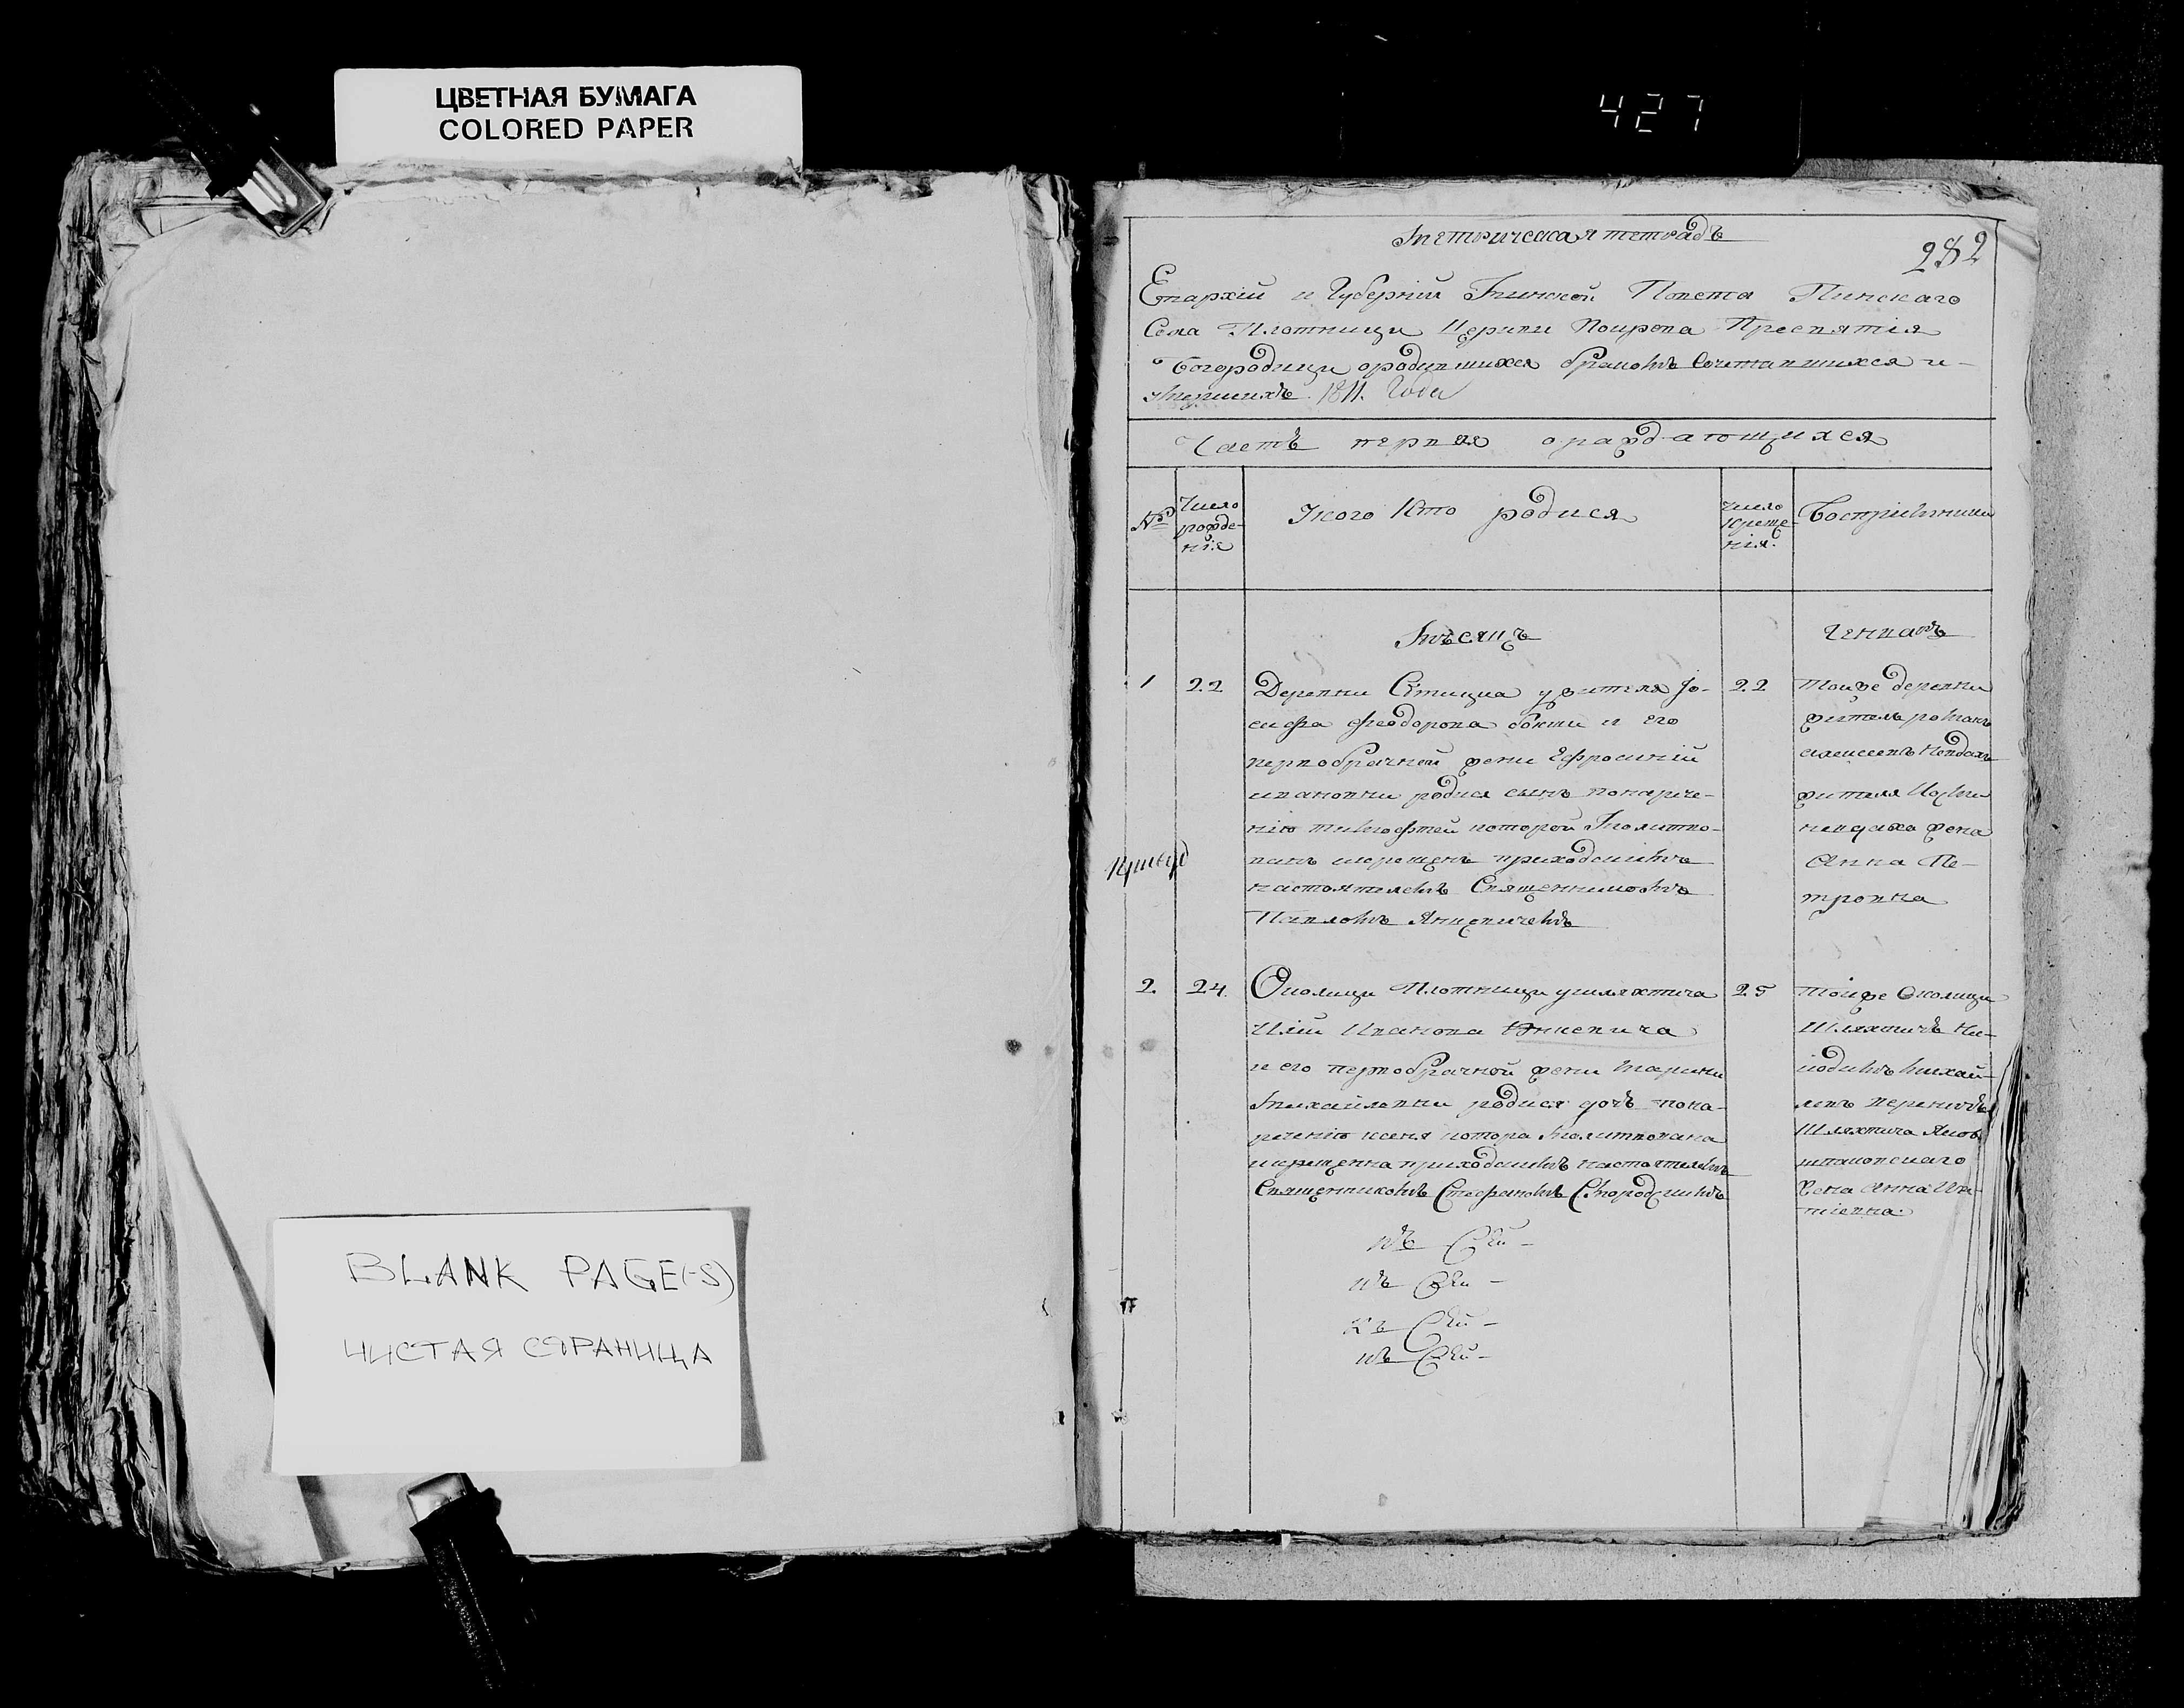 ЦВЕТНАЯ БУМАГА
COLORED PAPER
427
BLANK PAGE(-S)
ЧИСТАЯ СТРАНИЦА
Метрическая тетрадь
282
Епархіи и Губерніи Минской Повета Пинскаго
Села Плотницы Церкви Покрова Пресвятія
Богородицы ородившихся бракомъ Сочетавшихся и
умершихъ 1811. Года
Часть первая ораждающихся
№
Число
рожде-
нія
Укого Кто родися
Число
Креще-
нія.
Воспріемники
Мѣсяцъ
Генваръ
1
22
Деревни ужителя Іо-
сифа Феодорова и его
первобрачной жены Ефросиніи
ивановны родися сынъ понарече-
нію тимофтей которой Молитво-
ванъ икрещенъ приходскимъ
настоятелемъ Священникомъ
Павломъ
22
Тоиже деревни
житель романъ
жителя
жена
Анна Пе-
тровна
2.
24.
Околицы Плотницы ушляхтича
Иліи Иванова
и его первобрачной жены марины
Михайловны родися дочь пона-
речению ксеня котора Молитвована
икрещенна приходскимъ настоятелемъ
Священникомъ Стефаномъ
25
Тоиже Околицы
Шляхтичъ Ни-
кодимъ михай-
ловъ
Шляхтича
Жена Анна